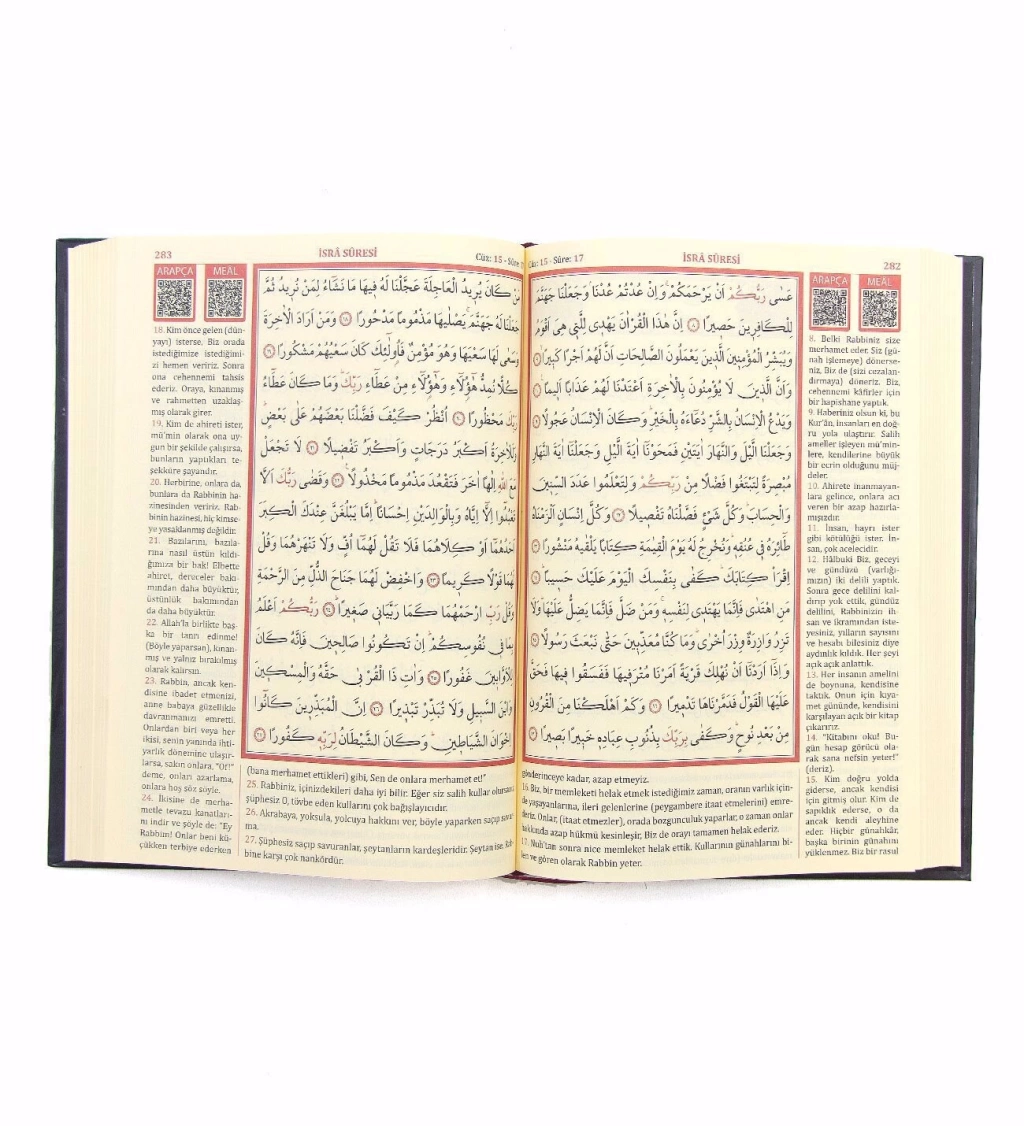 Cüz: 15 - Sûre: 17
İSRÂ SÛRESİ
282
ARAPÇA
MEÂL
عَسٰى رَبُّكُمْ اَنْ يَرْحَمَكُمْۚ وَاِنْ عُدْتُمْ عُدْنَاۢ وَجَعَلْنَا جَهَنَّمَ
لِلْكَافِر۪ينَ حَص۪يراً ﴿٨﴾ اِنَّ هٰذَا الْقُرْاٰنَ يَهْد۪ي لِلَّت۪ي هِيَ اَقْوَمُ
وَيُبَشِّرُ الْمُؤْمِن۪ينَ الَّذ۪ينَ يَعْمَلُونَ الصَّالِحَاتِ اَنَّ لَهُمْ اَجْراً كَب۪يراًۙ ﴿٩﴾
وَاَنَّ الَّذ۪ينَ لَا يُؤْمِنُونَ بِالْاٰخِرَةِ اَعْتَدْنَا لَهُمْ عَذَاباً اَل۪يماً۟ ﴿١٠﴾
وَيَدْعُ الْاِنْسَانُ بِالشَّرِّ دُعَٓاءَهُ بِالْخَيْرِۜ وَكَانَ الْاِنْسَانُ عَجُولاً ﴿١١﴾
وَجَعَلْنَا الَّيْلَ وَالنَّهَارَ اٰيَتَيْنِ فَمَحَوْنَٓا اٰيَةَ الَّيْلِ وَجَعَلْنَٓا اٰيَةَ النَّهَارِ
مُبْصِرَةً لِتَبْتَغُوا فَضْلاً مِنْ رَبِّكُمْ وَلِتَعْلَمُوا عَدَدَ السِّن۪ينَ
وَالْحِسَابَۜ وَكُلَّ شَيْءٍ فَصَّلْنَاهُ تَفْص۪يلاً ﴿١٢﴾ وَكُلَّ اِنْسَانٍ اَلْزَمْنَاهُ
طَٓائِرَهُ ف۪ي عُنُقِه۪ۜ وَنُخْرِجُ لَهُ يَوْمَ الْقِيٰمَةِ كِتَاباً يَلْقٰيهُ مَنْشُوراً ﴿١٣﴾
اِقْرَأْ كِتَابَكَۜ كَفٰى بِنَفْسِكَ الْيَوْمَ عَلَيْكَ حَس۪يباًۜ ﴿١٤﴾
مَنِ اهْتَدٰى فَاِنَّمَا يَهْتَد۪ي لِنَفْسِه۪ۚ وَمَنْ ضَلَّ فَاِنَّمَا يَضِلُّ عَلَيْهَاۜ وَلَا
تَزِرُ وَازِرَةٌ وِزْرَ اُخْرٰىۜ وَمَا كُنَّا مُعَذِّب۪ينَ حَتّٰى نَبْعَثَ رَسُولاً ﴿١٥﴾
وَاِذَٓا اَرَدْنَٓا اَنْ نُهْلِكَ قَرْيَةً اَمَرْنَا مُتْرَف۪يهَا فَفَسَقُوا ف۪يهَا فَحَقَّ
عَلَيْهَا الْقَوْلُ فَدَمَّرْنَاهَا تَدْم۪يراً ﴿١٦﴾ وَكَمْ اَهْلَكْنَا مِنَ الْقُرُونِ
مِنْ بَعْدِ نُوحٍۜ وَكَفٰى بِرَبِّكَ بِذُنُوبِ عِبَادِه۪ خَب۪يراً بَص۪يراً ﴿١٧﴾
8. Belki Rabbiniz size
merhamet eder. Siz (gü-
nah işlemeye) dönerse-
niz, Biz de (sizi cezalan-
dırmaya) döneriz. Biz,
cehennemi kâfirler için
bir hapishane yaptık.
9. Haberiniz olsun ki, bu
Kur'ân, insanları en doğ-
ru yola ulaştırır. Salih
ameller işleyen mü'min-
lere, kendilerine büyük
bir ecrin olduğunu müj-
deler.
10. Ahirete inanmayan-
lara gelince, onlara acı
veren bir azap hazırla-
mışızdır.
11. İnsan, hayrı ister
gibi kötülüğü ister. İn-
san, çok acelecidir.
12. Hâlbuki Biz, geceyi
ve gündüzü (varlığı-
mızın) iki delili yaptık.
Sonra gece delilini kal-
dırıp yok ettik, gündüz
delilini, Rabbinizin ih-
san ve ikramından iste-
yesiniz, yılların sayısını
ve hesabı bilesiniz diye
aydınlık kıldık. Her şeyi
açık açık anlattık.
13. Her insanın amelini
de boynuna, kendisine
taktık. Onun için kıya-
met gününde, kendisini
karşılayan açık bir kitap
çıkarırız.
14. "Kitabını oku! Bu-
gün hesap görücü ola-
rak sana nefsin yeter!"
(deriz).
15. Kim doğru yolda
giderse, ancak kendisi
için gitmiş olur. Kim de
sapıklık ederse, o da
ancak kendi aleyhine
eder. Hiçbir günahkâr,
başka birinin günahını
yüklenmez. Biz bir rasul
gönderinceye kadar, azap etmeyiz.
16. Biz, bir memleketi helak etmek istediğimiz zaman, oranın varlık için-
de yaşayanlarına, ileri gelenlerine (peygambere itaat etmelerini) emre-
deriz. Onlar, (itaat etmezler), orada bozgunculuk yaparlar, o zaman onlar
hakkında azap hükmü kesinleşir, Biz de orayı tamamen helak ederiz.
17. Nuh'tan sonra nice memleket helak ettik. Kullarının günahlarını bi-
len ve gören olarak Rabbin yeter.
283
İSRÂ SÛRESİ
Cüz: 15 - Sûre:
ARAPÇA
MEÂL
مَنْ كَانَ يُر۪يدُ الْعَاجِلَةَ عَجَّلْنَا لَهُ ف۪يهَا مَا نَشَٓاءُ لِمَنْ نُر۪يدُ ثُمَّ
جَعَلْنَا لَهُ جَهَنَّمَۚ يَصْلٰيهَا مَذْمُوماً مَدْحُوراً ﴿١٨﴾ وَمَنْ اَرَادَ الْاٰخِرَةَ
وَسَعٰى لَهَا سَعْيَهَا وَهُوَ مُؤْمِنٌ فَاُو۬لٰٓئِكَ كَانَ سَعْيُهُمْ مَشْكُوراً ﴿١٩﴾
كُلاًّ نُمِدُّ هٰٓؤُ۬لَٓاءِ وَهٰٓؤُ۬لَٓاءِ مِنْ عَطَٓاءِ رَبِّكَۜ وَمَا كَانَ عَطَٓاءُ
رَبِّكَ مَحْظُوراً ﴿٢٠﴾ اُنْظُرْ كَيْفَ فَضَّلْنَا بَعْضَهُمْ عَلٰى بَعْضٍۜ
وَلَلْاٰخِرَةُ اَكْبَرُ دَرَجَاتٍ وَاَكْبَرُ تَفْض۪يلاً ﴿٢١﴾ لَا تَجْعَلْ
مَعَ اللّٰهِ اِلٰهاً اٰخَرَ فَتَقْعُدَ مَذْمُوماً مَخْذُولاً۟ ﴿٢٢﴾ وَقَضٰى رَبُّكَ اَلَّا
تَعْبُدُٓوا اِلَّٓا اِيَّاهُ وَبِالْوَالِدَيْنِ اِحْسَاناًۜ اِمَّا يَبْلُغَنَّ عِنْدَكَ الْكِبَرَ
اَحَدُهُمَٓا اَوْ كِلَاهُمَا فَلَا تَقُلْ لَهُمَٓا اُفٍّ وَلَا تَنْهَرْهُمَا وَقُلْ
لَهُمَا قَوْلاً كَر۪يماً ﴿٢٣﴾ وَاخْفِضْ لَهُمَا جَنَاحَ الذُّلِّ مِنَ الرَّحْمَةِ
وَقُلْ رَبِّ ارْحَمْهُمَا كَمَا رَبَّيَان۪ي صَغ۪يراًۜ ﴿٢٤﴾ رَبُّكُمْ اَعْلَمُ
بِمَا ف۪ي نُفُوسِكُمْۜ اِنْ تَكُونُوا صَالِح۪ينَ فَاِنَّهُ كَانَ
لِلْاَوَّاب۪ينَ غَفُوراً ﴿٢٥﴾ وَاٰتِ ذَا الْقُرْبٰى حَقَّهُ وَالْمِسْك۪ينَ
وَابْنَ السَّب۪يلِ وَلَا تُبَذِّرْ تَبْذ۪يراً ﴿٢٦﴾ اِنَّ الْمُبَذِّر۪ينَ كَانُٓوا
اِخْوَانَ الشَّيَاط۪ينِۜ وَكَانَ الشَّيْطَانُ لِرَبِّه۪ كَفُوراً ﴿٢٧﴾
18. Kim önce gelen (dün-
yayı) isterse, Biz orada
istediğimize istediğimi-
zi hemen veririz. Sonra
ona cehennemi tahsis
ederiz. Oraya, kınanmış
ve rahmetten uzaklaş-
mış olarak girer.
19. Kim de ahireti ister,
mü'min olarak ona uy-
gun bir şekilde çalışırsa,
bunların yaptıkları te-
şekküre şayandır.
20. Herbirine, onlara da,
bunlara da Rabbinin ha-
zinesinden veririz. Rab-
binin hazinesi, hiç kimse-
ye yasaklanmış değildir.
21. Bazılarını, bazıla-
rına nasıl üstün kıldı-
ğımıza bir bak! Elbette
ahiret, dereceler bakı-
mından daha büyüktür,
üstünlük bakımından
da daha büyüktür.
22. Allah'la birlikte baş-
ka bir tanrı edinme!
(Böyle yaparsan), kınan-
mış ve yalnız bırakılmış
olarak kalırsın.
23. Rabbin, ancak ken-
disine ibadet etmenizi,
anne babaya güzellikle
davranmanızı emretti.
Onlardan biri veya her
ikisi, senin yanında ihti-
yarlık dönemine ulaşır-
larsa, sakın onlara, "Of!"
deme, onları azarlama,
onlara hoş söz söyle.
24. İkisine de merha-
metle tevazu kanatları-
nı indir ve şöyle de: "Ey
Rabbim! Onlar beni kü-
çükken terbiye ederken
(bana merhamet ettikleri) gibi, Sen de onlara merhamet et!"
25. Rabbiniz, içinizdekileri daha iyi bilir. Eğer siz salih kullar olursanız,
şüphesiz O, tövbe eden kullarını çok bağışlayıcıdır.
26. Akrabaya, yoksula, yolcuya hakkını ver, böyle yaparken saçıp savur-
ma.
27. Şüphesiz saçıp savuranlar, şeytanların kardeşleridir. Şeytan ise, Rab-
bine karşı çok nankördür.